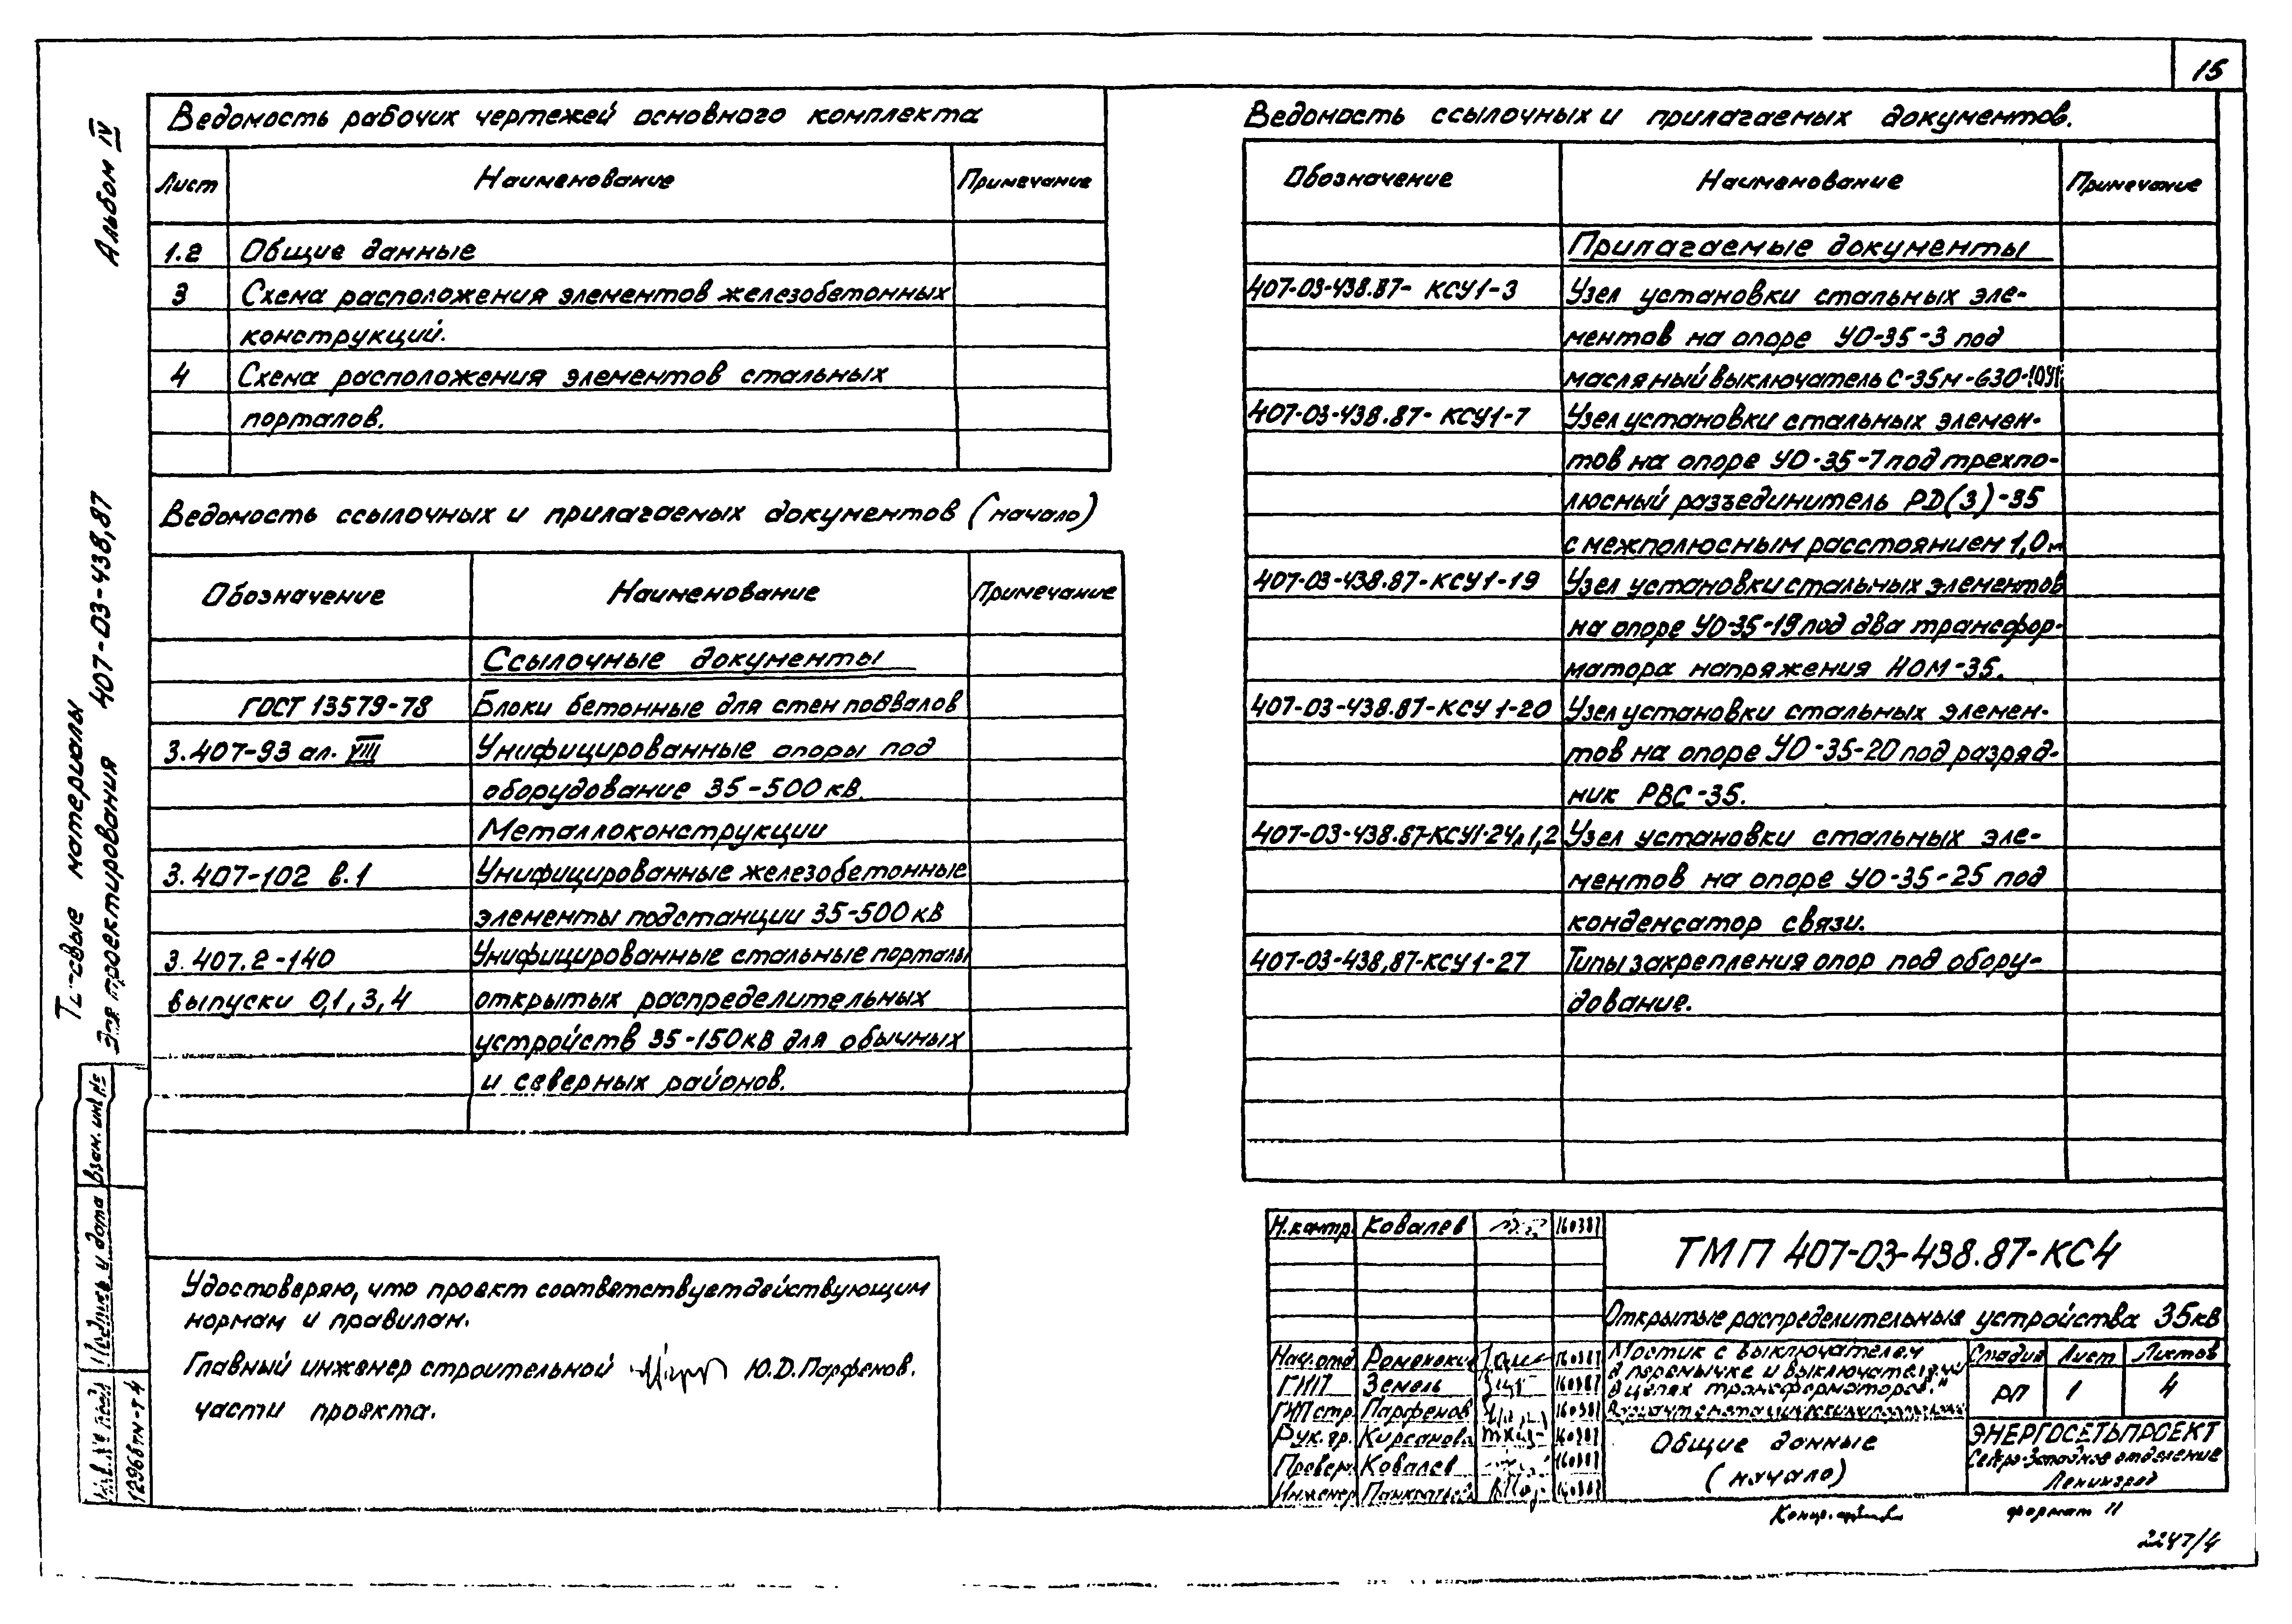 15
Альбом IV
Типовые материалы
для проектирования 407-03-438,87
Ведомость рабочих чертежей основного комплекта
Лист Наименование Примечание
1.2 Общие данные
3 Схема расположения элементов железобетонных
конструкций.
4 Схема расположения элементов стальных
порталов.
Ведомость ссылочных и прилагаемых документов (начало)
Обозначение Наименование Примечание
Ссылочные документы
ГОСТ 13579-78 Блоки бетонные для стен подвалов
3.407-93 ал. VIII Унифицированные опоры под
оборудование 35-500кВ.
Металлоконструкции
3.407-102 в.1 Унифицированные железобетонные
элементы подстанции 35-500кВ
3.407.2-140 Унифицированные стальные порталы
выпуски 0,1,3,4 открытых распределительных
устройств 35-150кВ для обычных
и северных районов.
Ведомость ссылочных и прилагаемых документов.
Обозначение Наименование Примечание
Прилагаемые документы
407-03-438.87- КСУ1-3 Узел установки стальных эле-
ментов на опоре УО-35-3 под
масляный выключатель С-35м-630-10У1
407-03-438.87- КСУ1-7 Узел установки стальных элемен-
тов на опоре УО-35-7 под трехпо-
люсный разъединитель РД(З)-35
с межполюсным расстоянием 1,0м
407-03-438.87-КСУ1-19 Узел установки стальных элементов
на опоре УО-35-19 под два трансфор-
матора напряжения НОМ-35.
407-03-438.87-КСУ1-20 Узел установки стальных элемен-
тов на опоре УО-35-20 под разряд-
ник РВС-35.
407-03-438.87-КСУ1-24л1,2 Узел установки стальных эле-
ментов на опоре УО-35-25 под
конденсатор связи.
407-03-438,87-КСУ1-27 Типы закрепления опор под обору-
дование.
Удостоверяю, что проект соответствует действующим
нормам и правилам.
Главный инженер строительной Ю.D.Парфенов.
части проекта.
Взам. инв №
Подпись и дата
Инв. № подл
12968тм-т4
Н.контр. Ковалев 160387
Нач.отд Роменский 160387
ГИП Земель 160387
ГИП стр. Парфенов 160387
Рук.гр. Кирсанова 160387
Провер. Ковалев 160387
Инженер 160387
ТМП 407-03-438.87-КС4
Открытые распределительные устройства 35кВ
Мостик с выключателем
в перемычке и выключателями
в цепях трансформаторов."
Стадия Лист Листов
РП 1 4
Общие данные
(начало)
ЭНЕРГОСЕТЬПРОЕКТ
Северо-Западное отделение
Ленинград
формат 11
2247/4